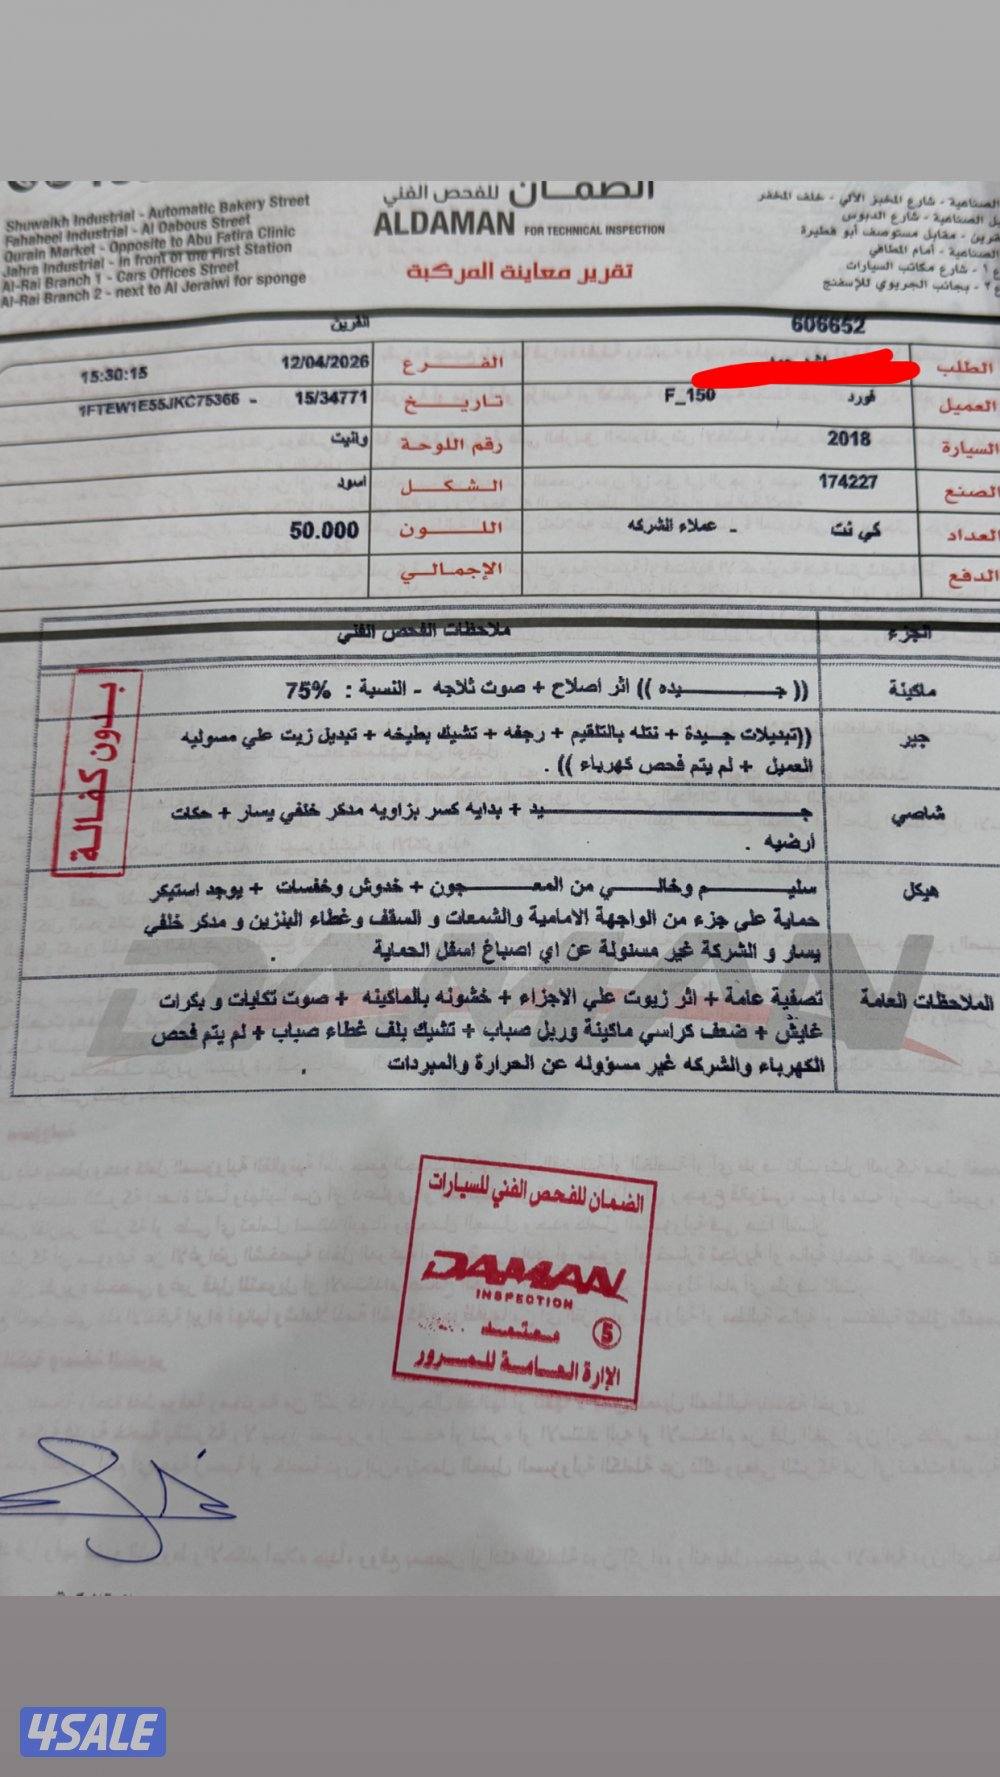 Shuwaikh Industrial - Automatic Bakery Street
Fahaheel Industrial - Al Dabous Street
Qurain Market - Opposite to Abu Fatira Clinic
Jahra Industrial - In front of the First Station
Al-Rai Branch 1 - Cars Offices Street
Al-Rai Branch 2 - next to Al Jeraiwi for sponge
الضمان للفحص الفني
ALDAMAN FOR TECHNICAL INSPECTION
تقرير معاينة المركبة
الصناعية - شارع المخبز الآلي - خلف المخفر
الصناعية - شارع الدبوس
مقابل مستوصف أبو فطيرة
الصناعية - أمام المطافي
شارع مكاتب السيارات
بجانب الجريوي للإسفنج
606652
القرين
الطلب
الفرع 12/04/2026 15:30:15
العميل فورد F_150
تاريخ 15/34771 - 1FTEW1E55JKC75366
السيارة 2018
رقم اللوحة وانيت
الصنع 174227
الشكل اسود
العداد كي نت - عملاء الشركه
اللون 50.000
الدفع
الإجمالي
الجزء ملاحظات الفحص الفني
ماكينة (( جيده )) اثر اصلاح + صوت ثلاجه - النسبة : 75%
جير ((تبديلات جيدة + نتله بالتلقيم + رجفه + تشيك بطيخه + تبديل زيت علي مسوليه
العميل + لم يتم فحص كهرباء )) .
شاصي جيد + بدايه كسر بزاويه مدكر خلفي يسار + حكات
ارضيه .
هيكل سليم وخالي من المعجون + خدوش وخفسات + يوجد استيكر
حماية على جزء من الواجهة الامامية والشمعات و السقف وغطاء البنزين و مدكر خلفي
يسار و الشركة غير مسئولة عن اي اصباغ اسفل الحماية .
الملاحظات العامة تصفية عامة + اثر زيوت علي الاجزاء + خشونه بالماكينه + صوت تكايات و بكرات
غايش + ضعف كراسي ماكينة وربل صباب + تشيك بلف غطاء صباب + لم يتم فحص
الكهرباء والشركه غير مسؤوله عن الحرارة والمبردات .
بدون كفالة
DAMAN
الضمان للفحص الفني للسيارات
DAMAN
INSPECTION
معتمد 5
الإرة العامة للمرور
4SALE